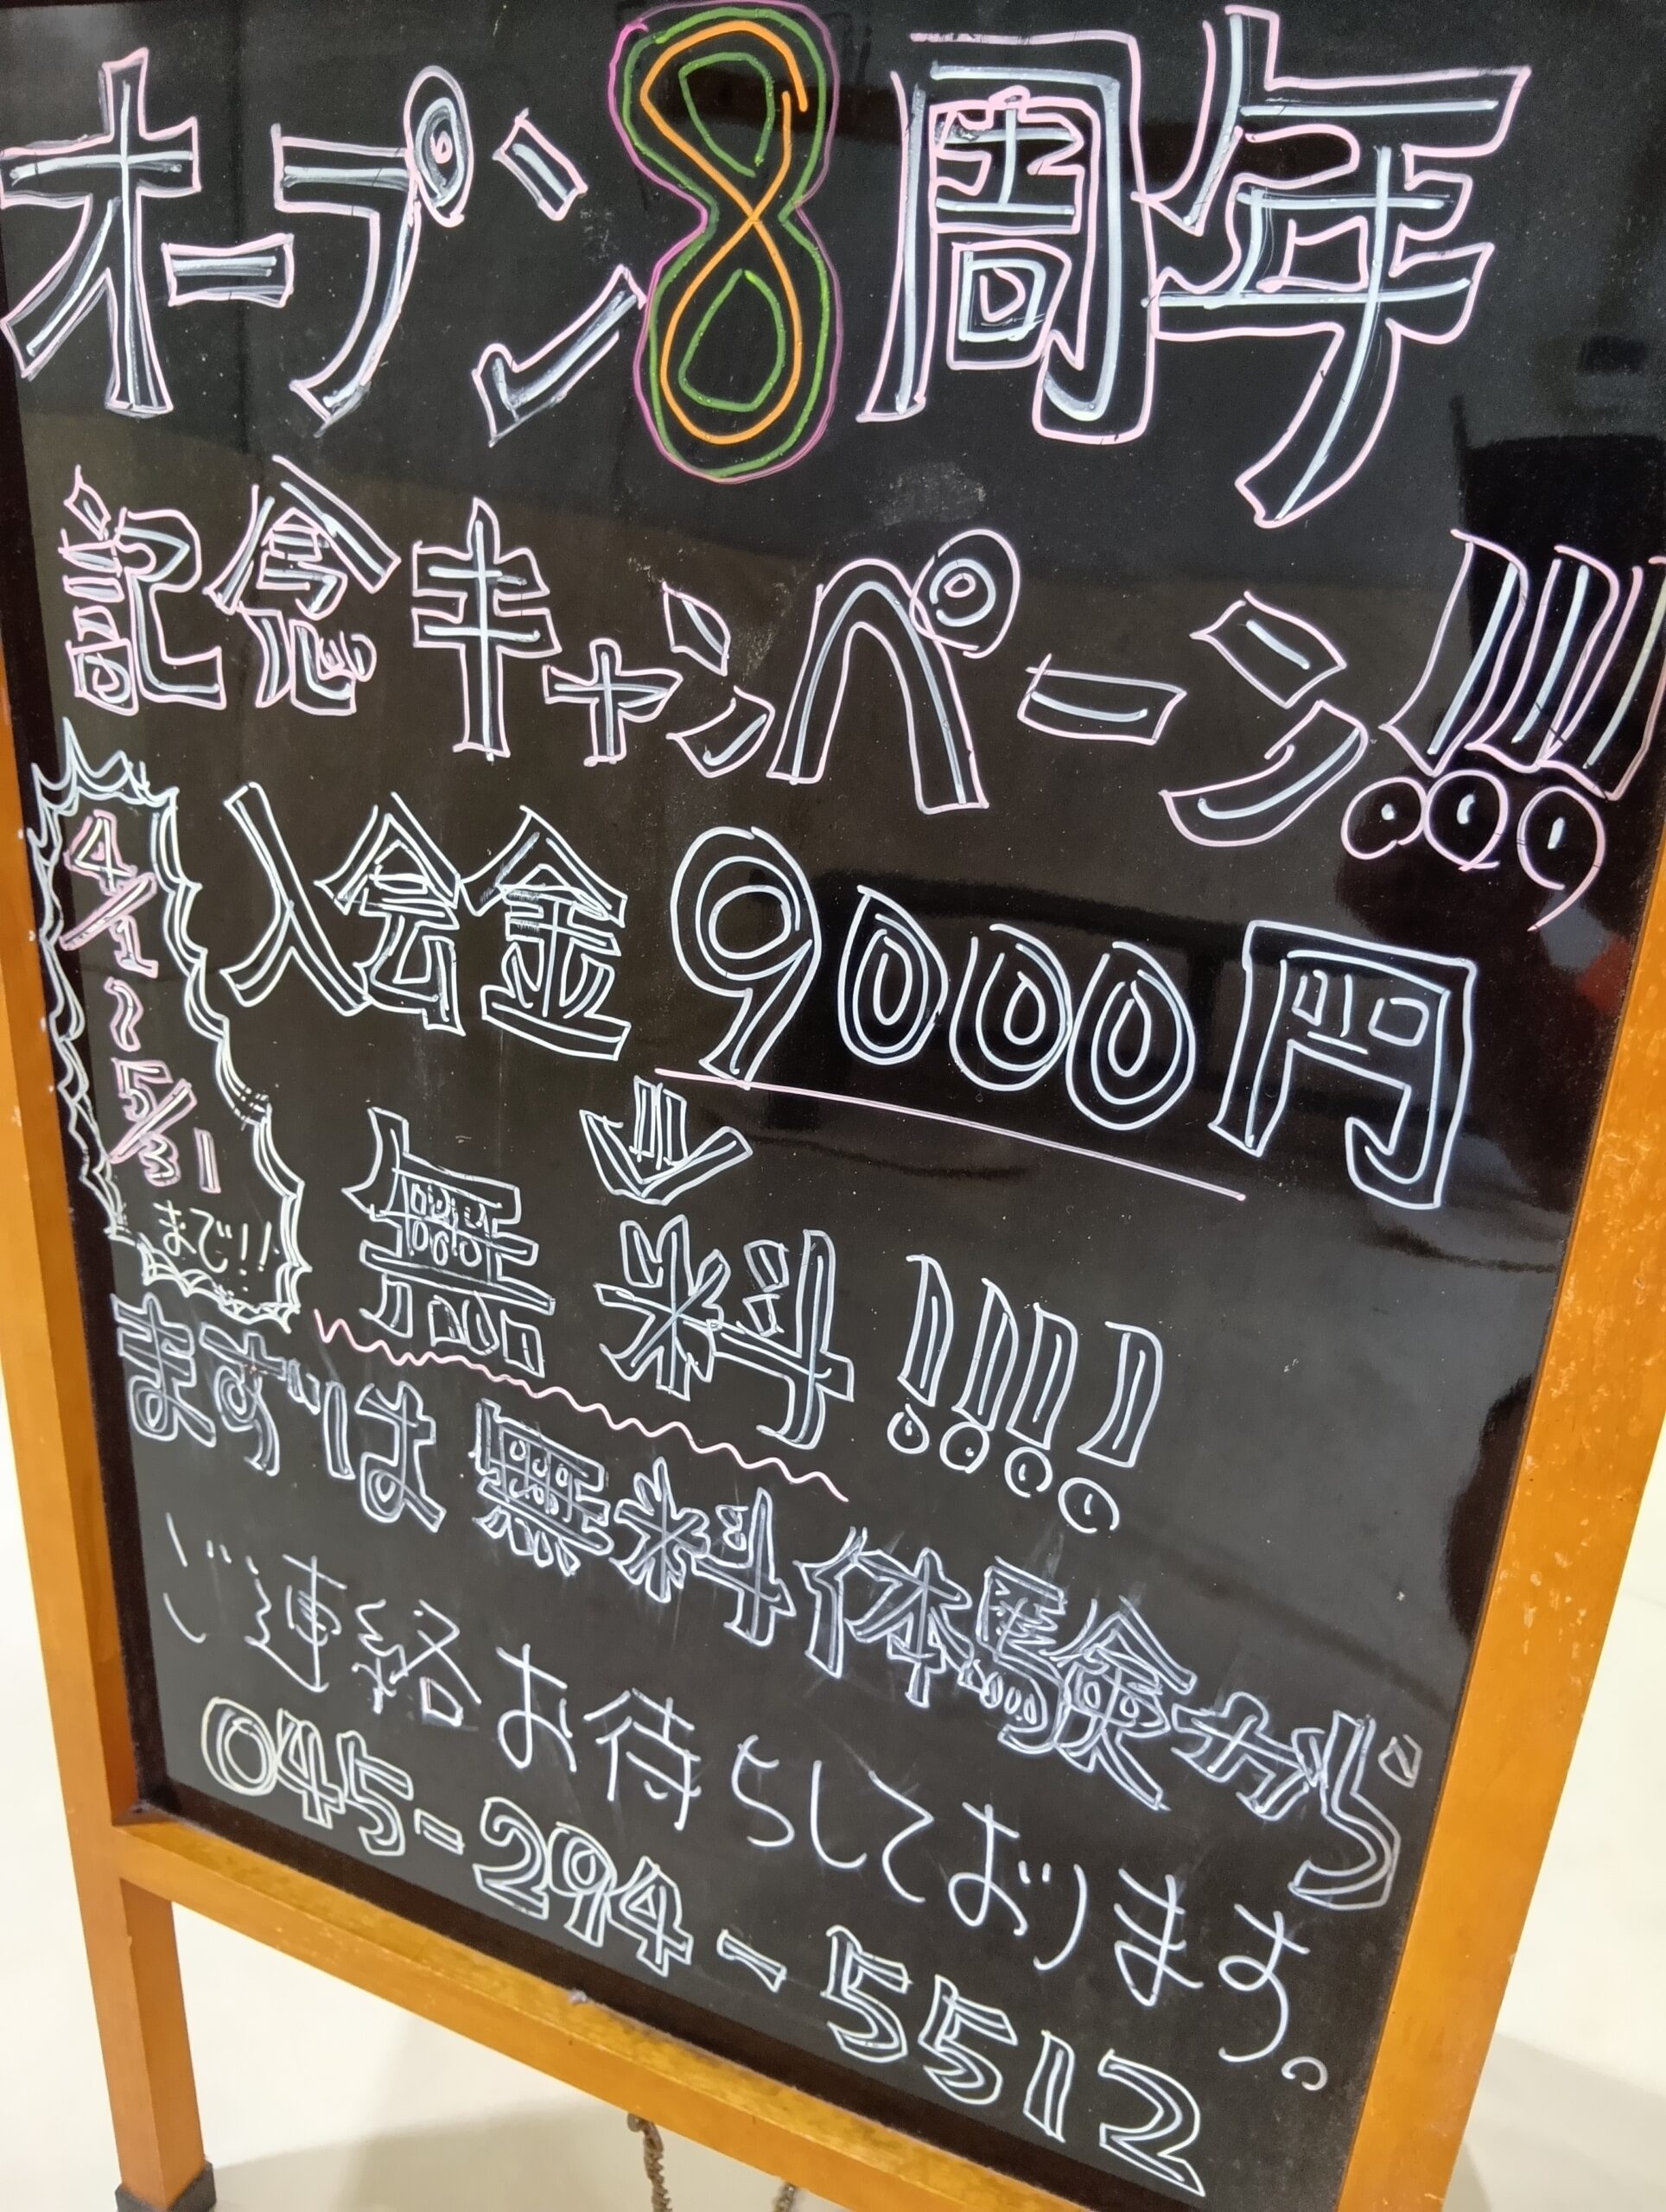 オープン8周年
記念キャンペーン!!!
4/1
〜
5/31
まで!!
入会金9000円
⇓
無料!!!!
まずは無料体験から
ご連絡お待ちしております。
045-294-5512